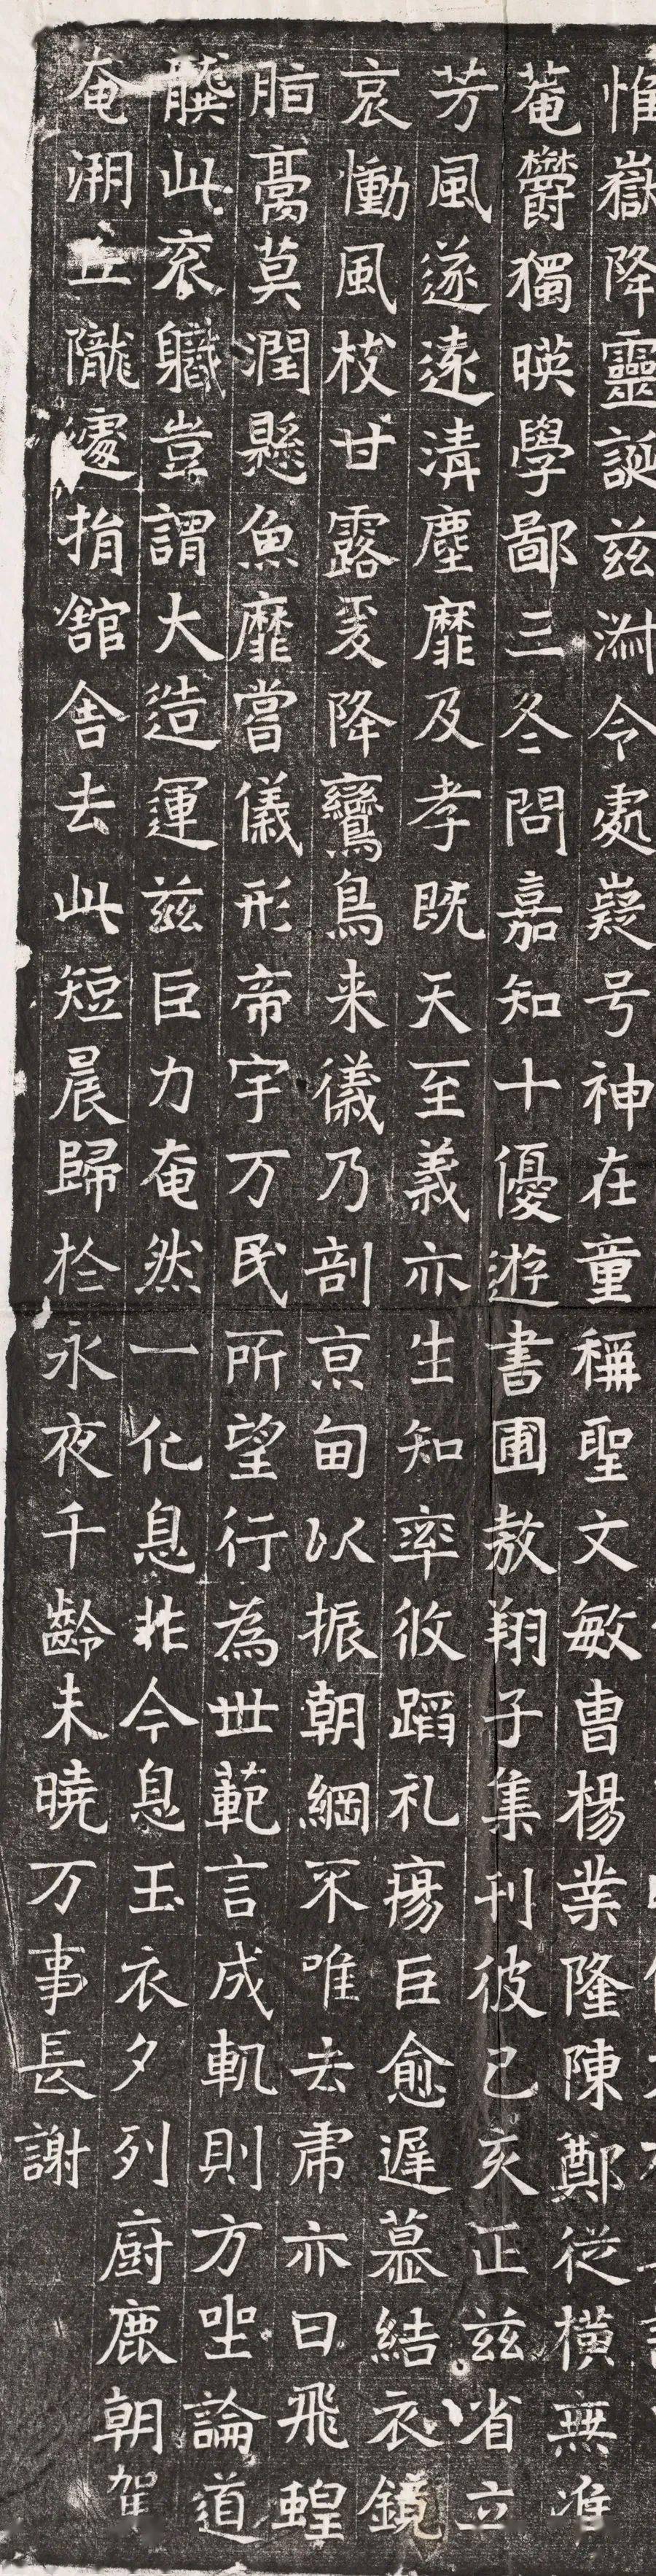 惟嶽降靈誕兹淋令處嶷号神在童稱聖文敏曹楊業隆陳鄭従横無准
菴欝獨暎學鄙三冬問嘉知十優遊書圃敖翔子集刊彼己亥正兹省立
芳風遂遠清塵靡及孝既天至義亦生知率攸蹈礼瘍巨愈遅慕結衣鏡
哀慟風枝甘露爰降鸞鳥来儀乃剖京甸以振朝綱不唯去虎亦曰飛蝗
脂膏莫潤懸魚靡嘗儀形帝宇万民所望行為世範言成軌則方坐論道
龔此衮職豈謂大造運兹巨力奄然一化息非今息玉衣夕列厨鹿朝駕
奄溯丘隴遽捐舘舍去此短晨歸扵永夜千齡未曉万事長謝